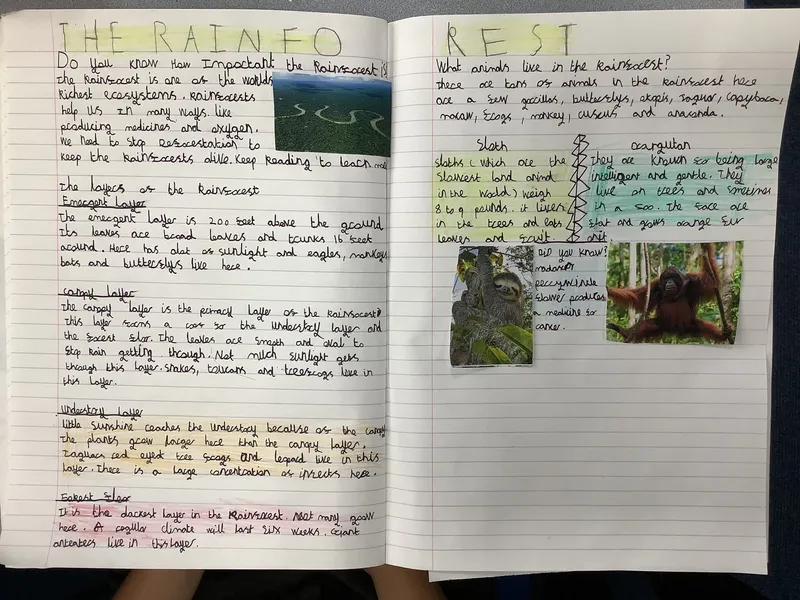 THE RAINFO
Do you know How Important the Rainforest is?
The Rainforest is one of the worlds
Richest ecosystems. Rainforests
help us In many ways. like
producing medicines and oxygen.
We need to Stop Deforestation to
keep the Rainforests alive. Keep Reading to learn more
The layers of the Rainforest
Emergent Layer
The emergent layer is 200 feet above the ground
Its leaves are broad leaves and trunks 16 feet
around. Here has alot of sunlight and eagles, monkeys
bats and butterflys live here.
canpy layer
The canpy layer is the primary layer of the Rainforest.
This layer forms a roof for the understory layer and
the forest floor. The leaves are smooth and oval to
Stop rain getting through. Not much sunlight gets
through this layer. snakes, toucans and treefrogs live in
this layer.
understory layer
little sunshine reaches the understory because of the canpy
The plants grow larger here than the canpy layer.
Jaguars red eyed tree frogs and lepard live in this
layer. There is a large concentration of insects here.
Forest floor
It is the darkest layer in the Rainforest. Not many grow
here. A regular climate will last six weeks. Giant
anteaters live in this layer.
REST
What animals live in the Rainforest?
there are tons of animals in the rainforest here
are a few gorillas, butterflys, Jaguar, Capybara,
macaw, frogs, monkey, cuscus and anaconda.
Sloth
sloths (which are the
Slowest land animal
in the world) weigh
8 to 9 pounds. it lives
in the trees and eats
leaves and fruit.
orangutan
They are known for being large
intelligent and gentle. They
live on trees and sometimes
in a zoo. The face are
flat and grows orange fur
Did you know?
perrywinkle
flower produces
a medicine for
cancer.